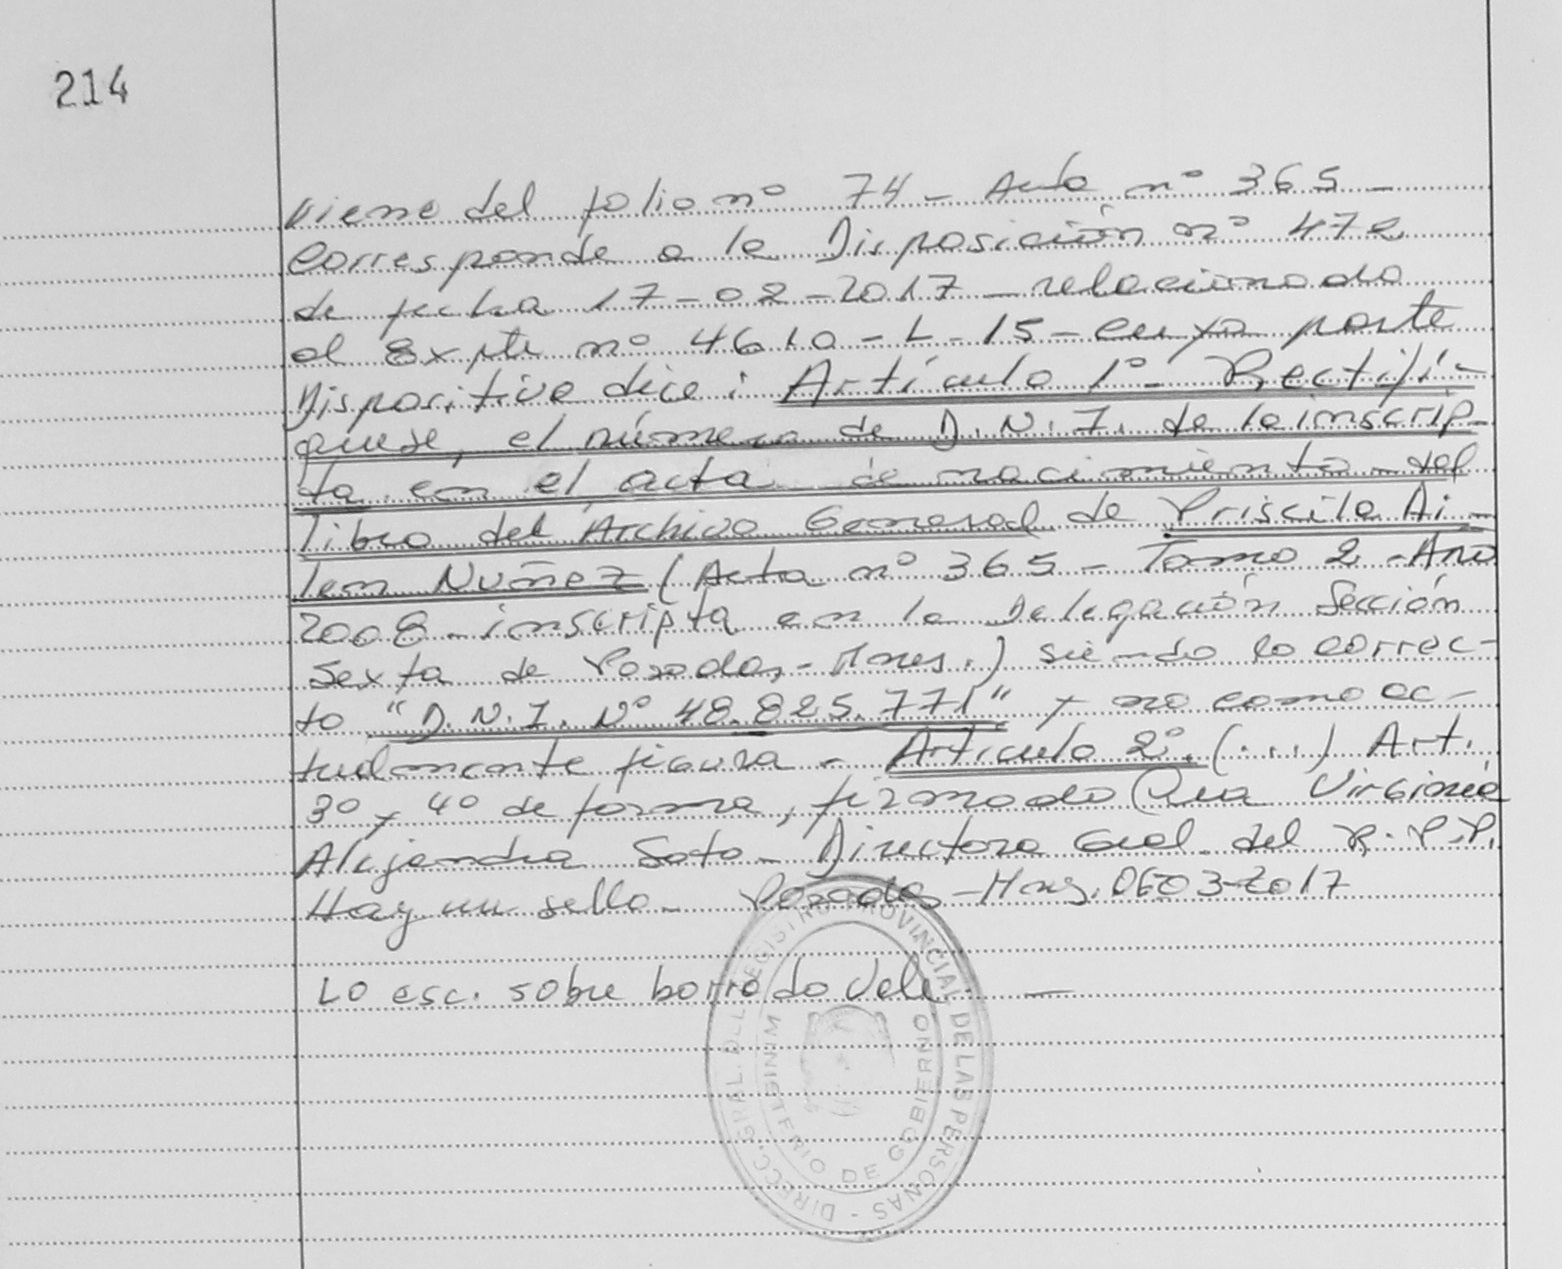 214
Viene del folio nº 74 - Acta nº 365 -
Corresponde a la Disposición nº 472
de fecha 17-02-2017 - relacionado
al Expte nº 4610-L-15- cuya parte
Dispositiva dice: Artículo 1º- Rectifí-
quese, el número de D.N.I. de la inscrip-
ta en el acta de nacimiento del
libro del Archivo General de Priscila Ai-
len Nuñez (Acta nº 365 - Tomo 2 - Año
2008 - inscripta en la Delegación Sección
Sexta de Posadas - Mnes.) siendo lo correc-
to "D.N.I. Nº 48.825.771" y no como ac-
tualmente figura - Artículo 2º. (...) Art.
3º y 4º de forma, firmado Virginia
Alejandra Soto - Directora Gral. del R.P.P.
Hay un sello - Posadas - Mnes. 06-03-2017
Lo esc. sobre borrado Vale. —
DIRECC. GRAL. DEL REGISTRO PROVINCIAL DE LAS PERSONAS -
MINISTERIO DE GOBIERNO